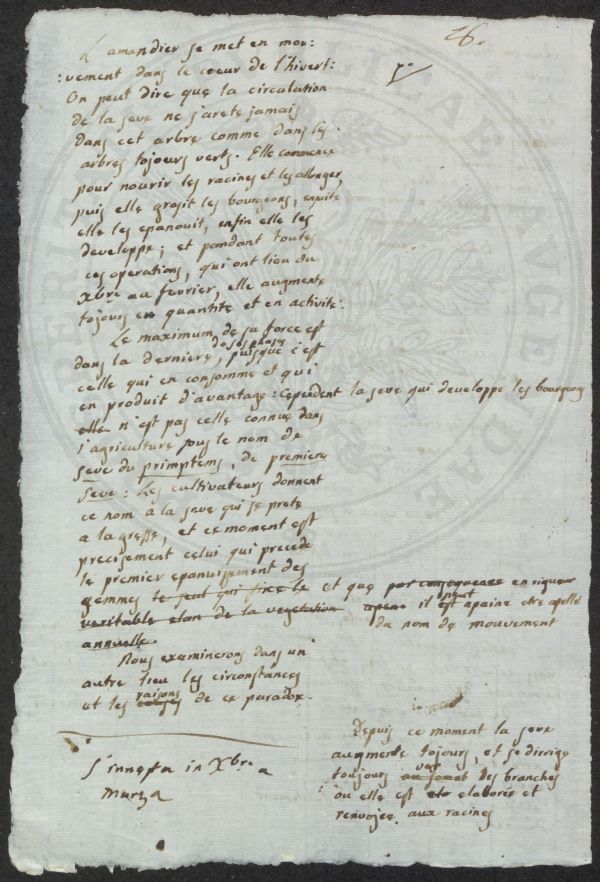 26.
L'amandier se met en mou:
:vement dans le coeur de l'hivert:
On peut dire que la circulation
de la seve ne s'arete jamais
dans cet arbre comme dans les
arbres tojours verts. Elle commence
pour nourir les racines et les allonger,
puis elle grosit les bourgeons, ensuite
elle les epanouit, enfin elle les
developpe; et pandant toutes
ces operations, qui ont lieu du
Xbre au fevrier, elle augmente
tojours en quantité et en activité:
Le maximum de sa force est
dans la derniere, de ses phases puisque c'est
celle qui en consomme et qui
en produit d'avantage: Cependent la seve qui developpe les bourgeons
elle n'est pas celle connue dans
l'agriculture sous le nom de
seve du primptems, de premiere
seve: Les cultivateurs donnent
ce nom à la seve qui se prete
a la greffe, et ce moment est
precisement celui qui precede
le premier epanuisement des
gemmes le seul qui fixe le et que par consequence en rigueur
veritable elan de la vegetation apene il peut est apaine etre apellé
annuelle. du nom de mouvement
Nous examinerons dans un
autre lieu les circonstances
et les raisons causes de ce paradox.
s'innesta in Xbre a
Marza
Depuis ce moment la seve
augmente tojours, et se dirrige
toujours vers des branches
où elle est elaborée et
renvojée aux racines